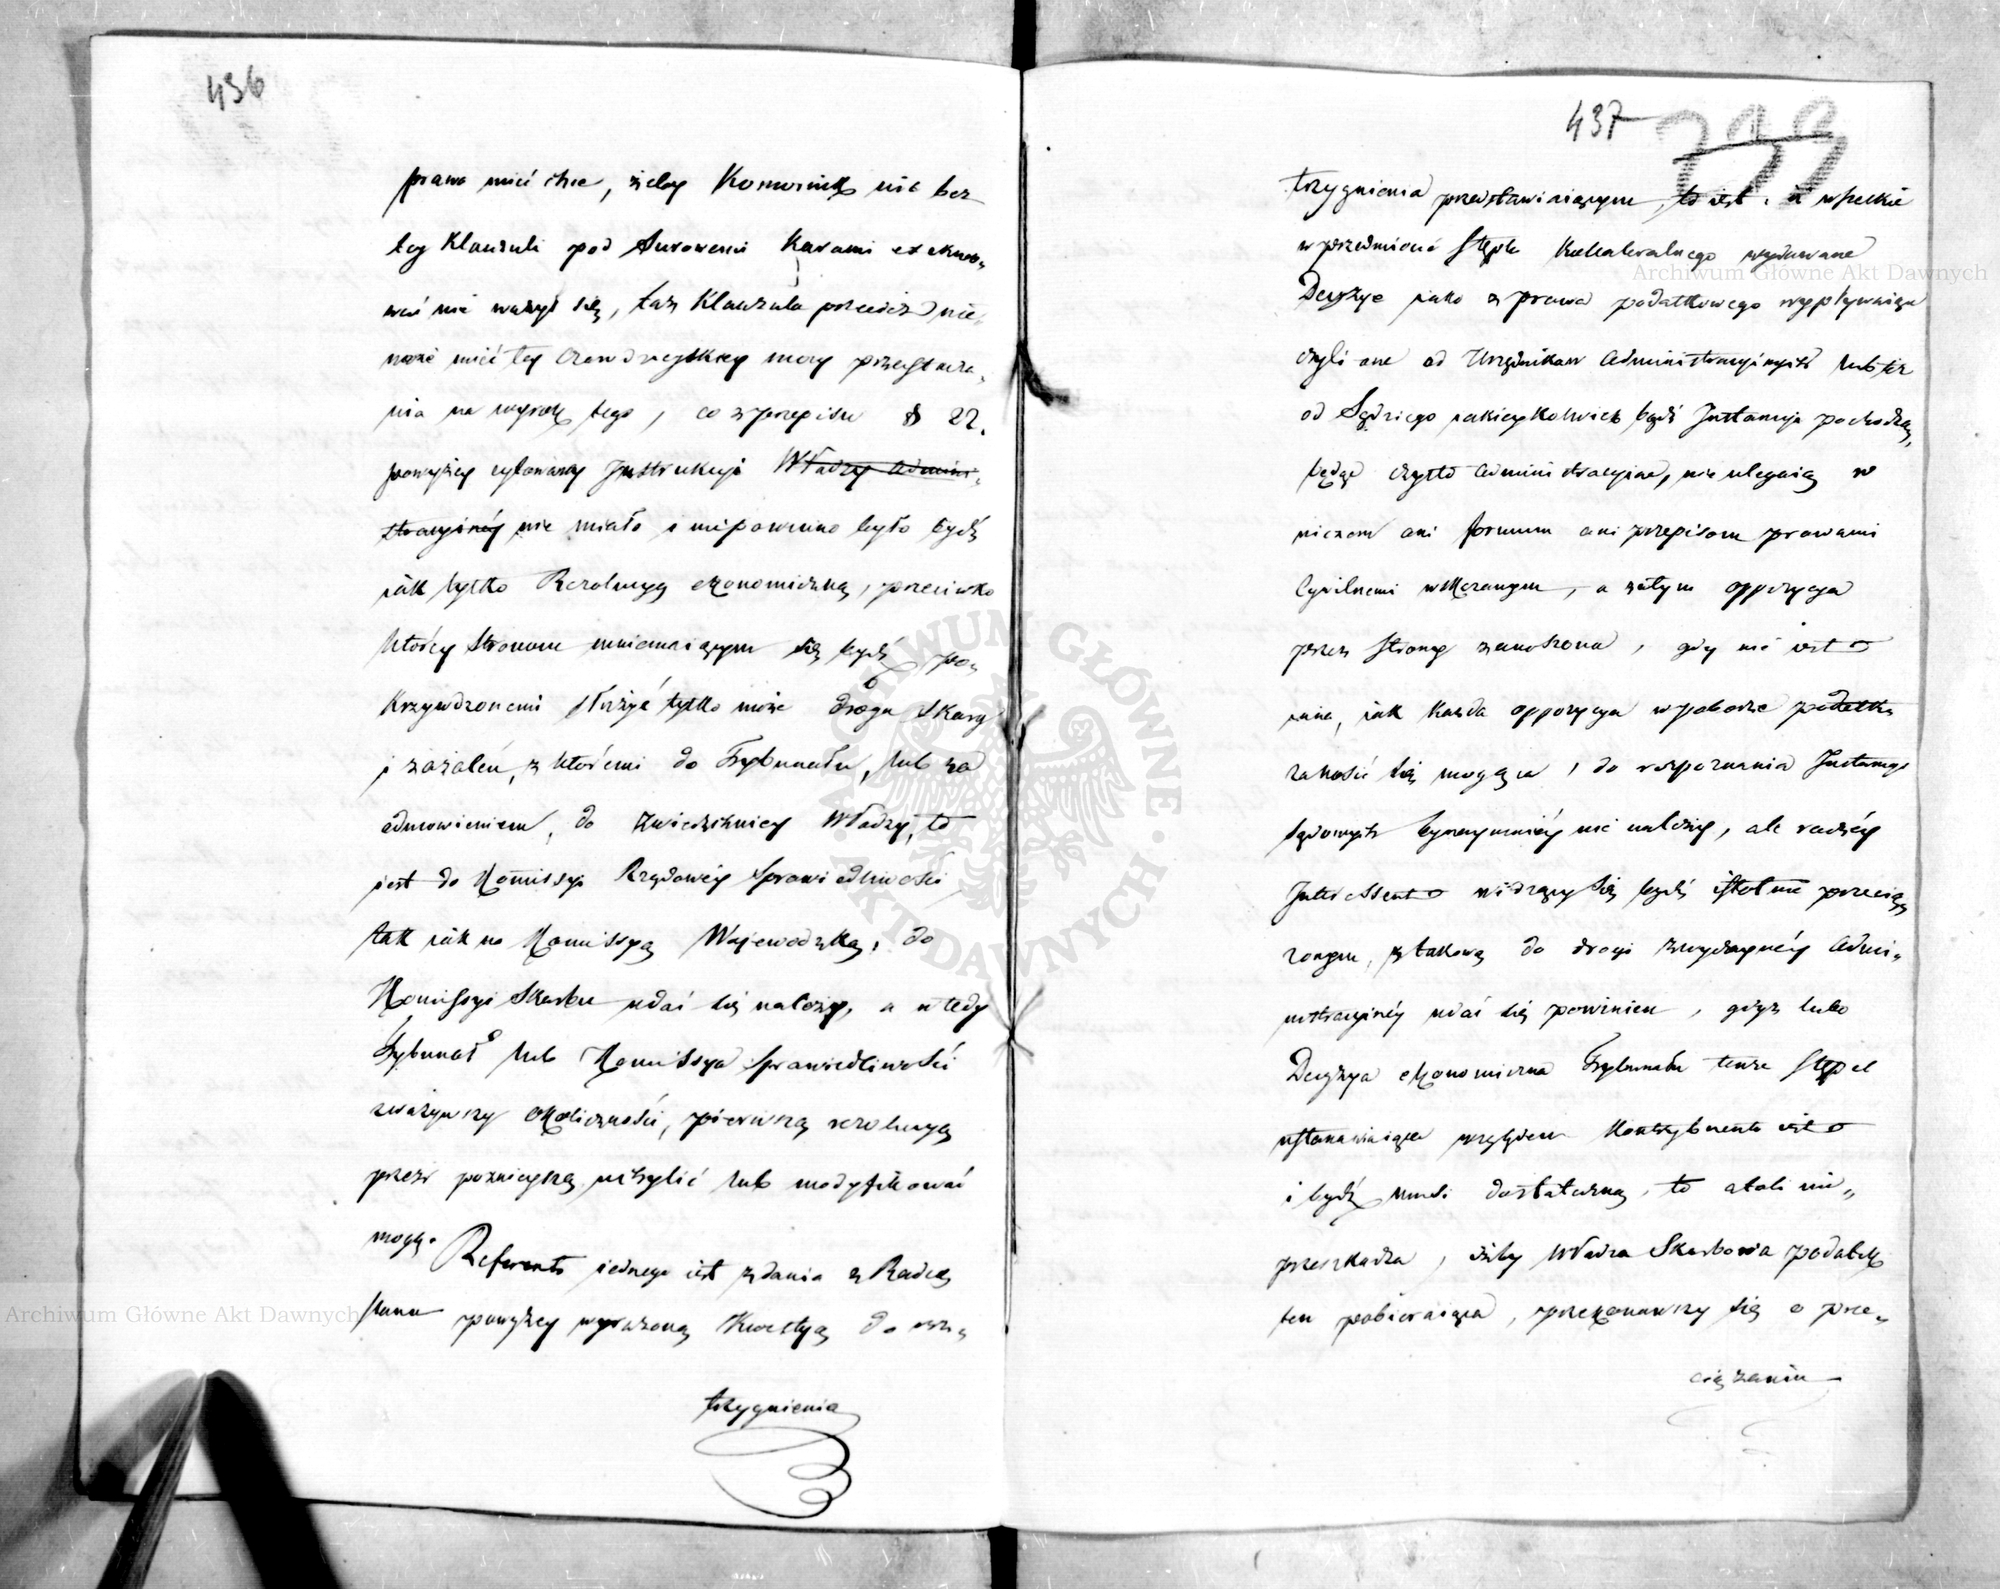 436
prawo mieć chce, żeby Komornik nie bez
tey Klauzuli pod surowemi Karami exekwo„
wać nie ważył się, taż Klauzula przecież nie„
może mieć tey czarodzieyskiey mocy przeistacza„
nia na wyrok tego, co z przepisu § 22.
powyżey cytowaney Instrukcyi Władzy Admini„
stracyinéy nie miało i niepowinno było bydź
iak tylko Rezolucyą ekonomiczną, przeciwko
którey Stronom mniemaiącym się bydź po„
Krzywdzonemi służyć tylko może droga skarg
i zażaleń, z któremi do Trybunału, lub za
odmowieniem, do zwierzchniey Władzy, to
iest do Kommissyi Rządowéy Sprawiedliwości
tak iak na Kommissyą Woiewodzką, do
Kommissyi Skarbu udać się należy, a wtedy
Trybunał lub Kommissya Sprawiedliwości
zważywszy okoliczności, pierwszą rezolucyą
przez poznieyszą uchylić lub modyfikować
mogą.
Referent jednego iest zdania z Radcą
Stanu powyżey wyrażoną Kwestyą do roz„
trzygnienia
437
trzygnienia przedstawiaiącym, to iest, iż wszelkie
w przedmiocie Stępla Kollateralnego wydawane
Decyzye iako z prawa podatkowego wypływaiące
czyli one od Urzędników Administracyinych lub też
od Sędziego iakieykolwiek bądź Instancyi pochodzą,
będąc czysto administracyine, nie ulegaią w
niczem ani formom ani przepisom prawami
Cywilnemi wskazanym, a zatym oppozycya
przez Stronę zanoszona, gdy nie iest
inna, iak każda oppozycya w poborze podatku
zanosić się mogąca, do rozpoznania Instancyi
Sądowych bynaymniéy nie należy, ale raczéy
Interessent widzący się bydź istotnie przecią„
żonym, z takową do drogi zwyczaynéy Admi„
nistracyinéy udać się powinien, gdyż lubo
Decyzya ekonomiczna Trybunału tenże Stępel
ustanawiaiąca względem Kontrybuenta iest
i bydź musi dostateczną, to atoli nie„
przeszkadza, żeby Władza Skarbowa podatek
ten pobieraiąca, przekonawszy się o prze„
ciążeniu
Archiwum Główne Akt Dawnych
Archiwum Główne Akt Dawnych
ARCHIWUM GŁÓWNE · AKT DAWNYCH ·